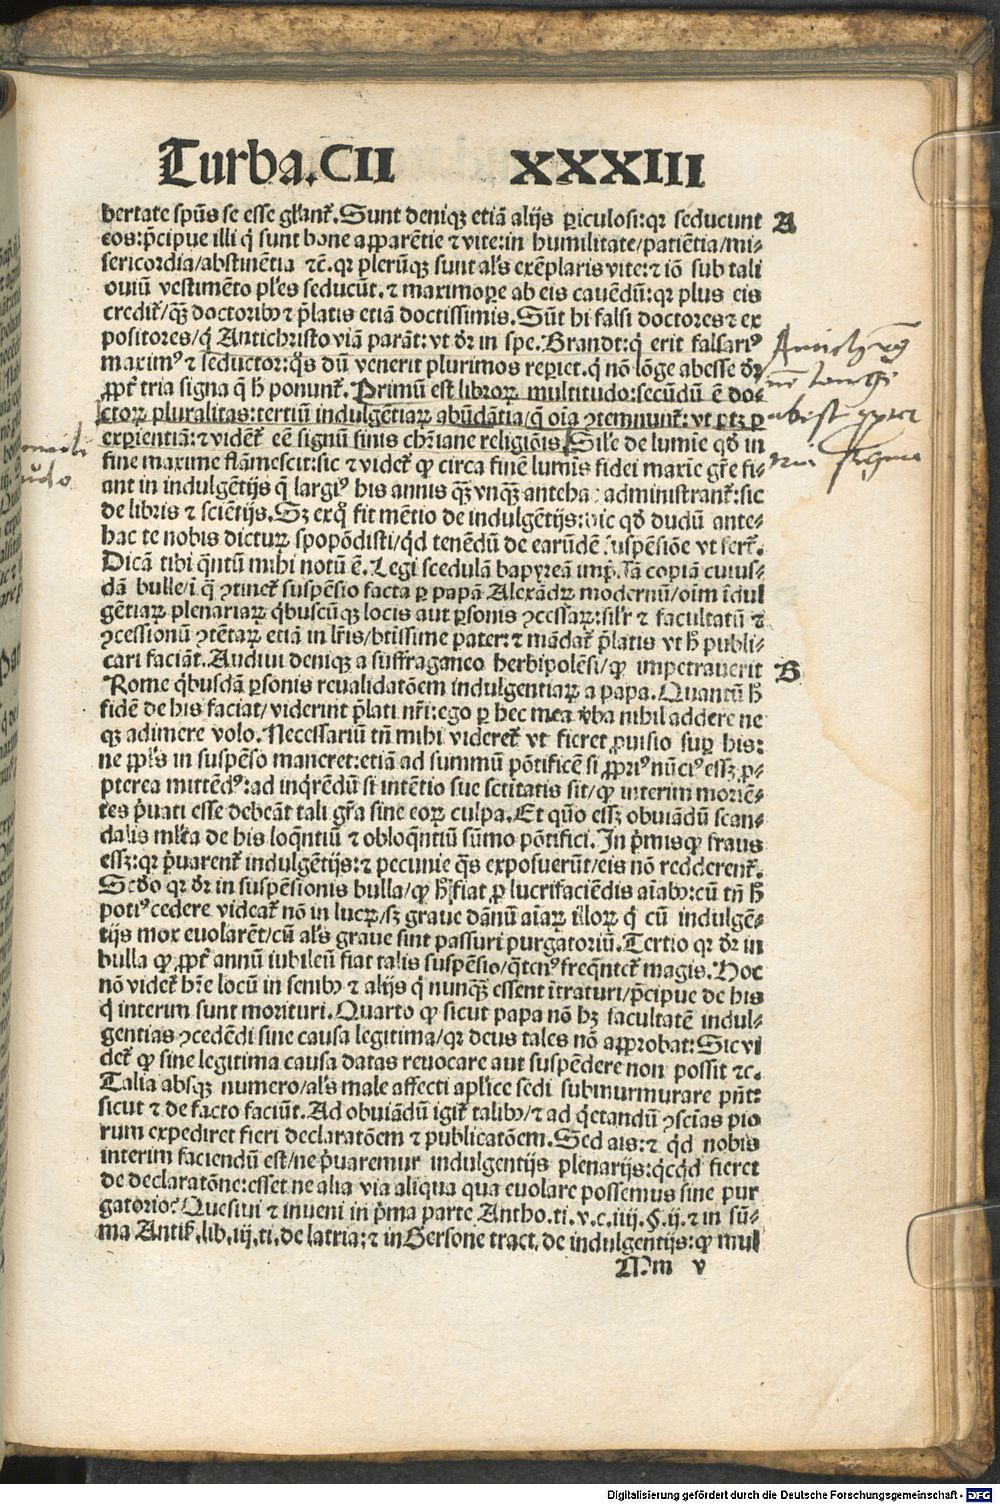 Turba.CII XXXIII
bertate spūs se esse gl'ant᷑. Sunt deniqꝫ etiā alijs ꝑiculosi: qꝛ seducunt A
eos: p̄cipue illi q̄ sunt bone apparētie ⁊ vite: in humilitate/patiētia/mi-
sericordia/abstinētia ⁊c̄. qꝛ plerūqꝫ sunt al's exēplaris vite: ⁊ iō sub tali
ouiū vestimēto pl'es seducūt. ⁊ maximopere ab eis cauēdū: qꝛ plus eis
credit᷑/qꝫ̄ doctoribꝰ ⁊ p̄latis etiā doctissimis. Sūt hi falsi doctores ⁊ ex
positores/q̄ Antichristo viā parāt: vt dr̄ in spe. Brandt: q̄ erit falsariꝰ
maximꝰ ⁊ seductor: q̄s dū venerit plurimos reperiet. q̄ nō lōge abesse dr̄
ꝓpt᷑ tria signa q̄ h̄ ponunt᷑. Primū est libroꝝ multitudo: secūdū ē do-
ctoꝝ pluralitas: tertiū indulgētiaꝝ abūdātia/q̄ oīa ꝯtemnunt᷑: vt ptꝫ ꝑ
experientiā: ⁊ videt᷑ eē signū finis chr̄iane religiōis. Sil'e de lumīe qd̄ in
fine maxime flāmescit: sic ⁊ videt᷑ ꝙ circa finē lumīs fidei maxīe gr̄e fi-
ant in indulgētijs q̄ largiꝰ his annis qꝫ̄ vnqꝫ̄ anteha administrant᷑: sic
de libris ⁊ sciētijs. Sꝫ exq̊ fit mētio de indulgētijs: hic qd̄ dudū ante-
hac te nobis dicturū spopōdisti/qd̄ tenēdū de earūdē suspēsiōe vt fert᷑.
Dicā tibi q̄ntū mihi notū ē. Legi scedulā bapyreā imp̄ssā copiā cuius-
dā bulle/ī q̄ ꝯtinet᷑ suspēsio facta ꝑ papā Alexādꝝ modernū/oīm īdul
gētiaꝝ plenariaꝝ q̄buscūqꝫ locis aut ꝑsonis ꝯcessaꝝ: sil'r ⁊ facultatū ⁊
ꝯcessionū ꝯtētaꝝ etiā in lr̄is/btīssime pater: ⁊ mādat᷑ p̄latis vt h̄ publi-
cari faciāt. Audiui denique a suffraganeo herbipolēsi/ꝙ impetrauerit B
Rome q̄busdā ꝑsonis reualidatōem indulgentiaꝝ a papa. Quantū h̄
fidē de his faciat/viderint p̄lati nr̄i: ego ꝑ hec mea v̄ba nihil addere ne
qꝫ adimere volo. Necessariū tn̄ mihi videret᷑ vt fieret ꝓuisio suꝑ his:
ne ppl's in suspēso maneret: etiā ad summū pōtificē si ꝓpriꝰ nūciꝰ essꝫ ꝓ-
pterea mittēdꝰ: ad inq̄rēdū si intētio sue sc̄titatis sit/ꝙ interim moriē-
tes p̄uati esse debeāt tali gr̄a sine eoꝝ culpa. Et quō essꝫ obuiādū scan-
dalis ml'ta de his loq̄ntiū ⁊ obloq̄ntiū sūmo pōtifici. In p̄mis ꝙ fraus
essꝫ: qꝛ p̄uarent᷑ indulgētijs: ⁊ pecunie q̄s exposuerūt/eis nō redderent᷑.
Secdo qꝛ dr̄ in suspēsionis bulla/ꝙ h̄ fiat ꝓ lucrifaciēdis aīabꝰ: cū tn̄ h̄
potiꝰ cedere videat᷑ nō in lucꝝ/sꝫ graue dānū aīaꝝ illoꝝ q̄ cū indulgē-
tijs mox euolarēt/cū al's graue sint passuri purgatoriū. Tertio qꝛ dr̄ in
bulla ꝙ ꝓpt᷑ annū iubileū fiat talis suspēsio/q̄tenꝰ freq̄ntet᷑ magis. Hoc
nō videt᷑ hr̄e locū in senibꝰ ⁊ alijs q̄ nunqꝫ̄ essent ītraturi/p̄cipue de his
q̄ interim sunt morituri. Quarto ꝙ sicut papa nō hꝫ facultatē indul-
gentias ꝯcedēdi sine causa legitima/qꝛ deus tales nō approbat: Sic vi
det᷑ ꝙ sine legitima causa datas reuocare aut suspēdere non possit ⁊c.
Talia absqꝫ numero/al's male affecti apl'ice sedi submurmurare pn̄t:
sicut ⁊ de facto faciūt. Ad obuiādū igit᷑ talibꝰ/⁊ ad q̄etandū ꝯsciētias pio
rum expediret fieri declaratōem ⁊ publicatōem. Sed ais: ⁊ qd̄ nobis
interim faciendū est/ne p̄uaremur indulgentijs plenarijs: q̄cqd̄ fieret
de declaratōne: esset ne alia via aliqua qua euolare possemus sine pur
gatorio? Quesiui ⁊ inueni in p̄ma parte Antho. ti. v. c. iiij. §. ij. ⁊ in sū-
ma Antiß. lib. iij. ti. de latria: ⁊ in Gersone tract. de indulgentijs: ꝙ mul
Mm v
Digitalisierung gefördert durch die Deutsche Forschungsgemeinschaft - DFG